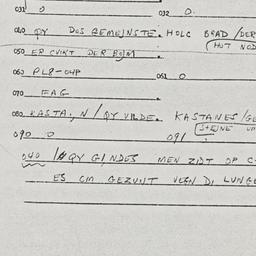 031 0 032 0.
040 QY DOS GEMEINSTE. HOLC BRAD /DER
(HUT NOD
050 ER CVIKT DER BOJM
060 PL8-04P 061 0
070 FAG
080 KASTAJN / QY VILDE. KASTANES /GE
(STEJNE UP
090 0 091 :
040 QY GINDES MEN ZIJT OP C
ES CM GEZUNT VEGN DI LUNGE